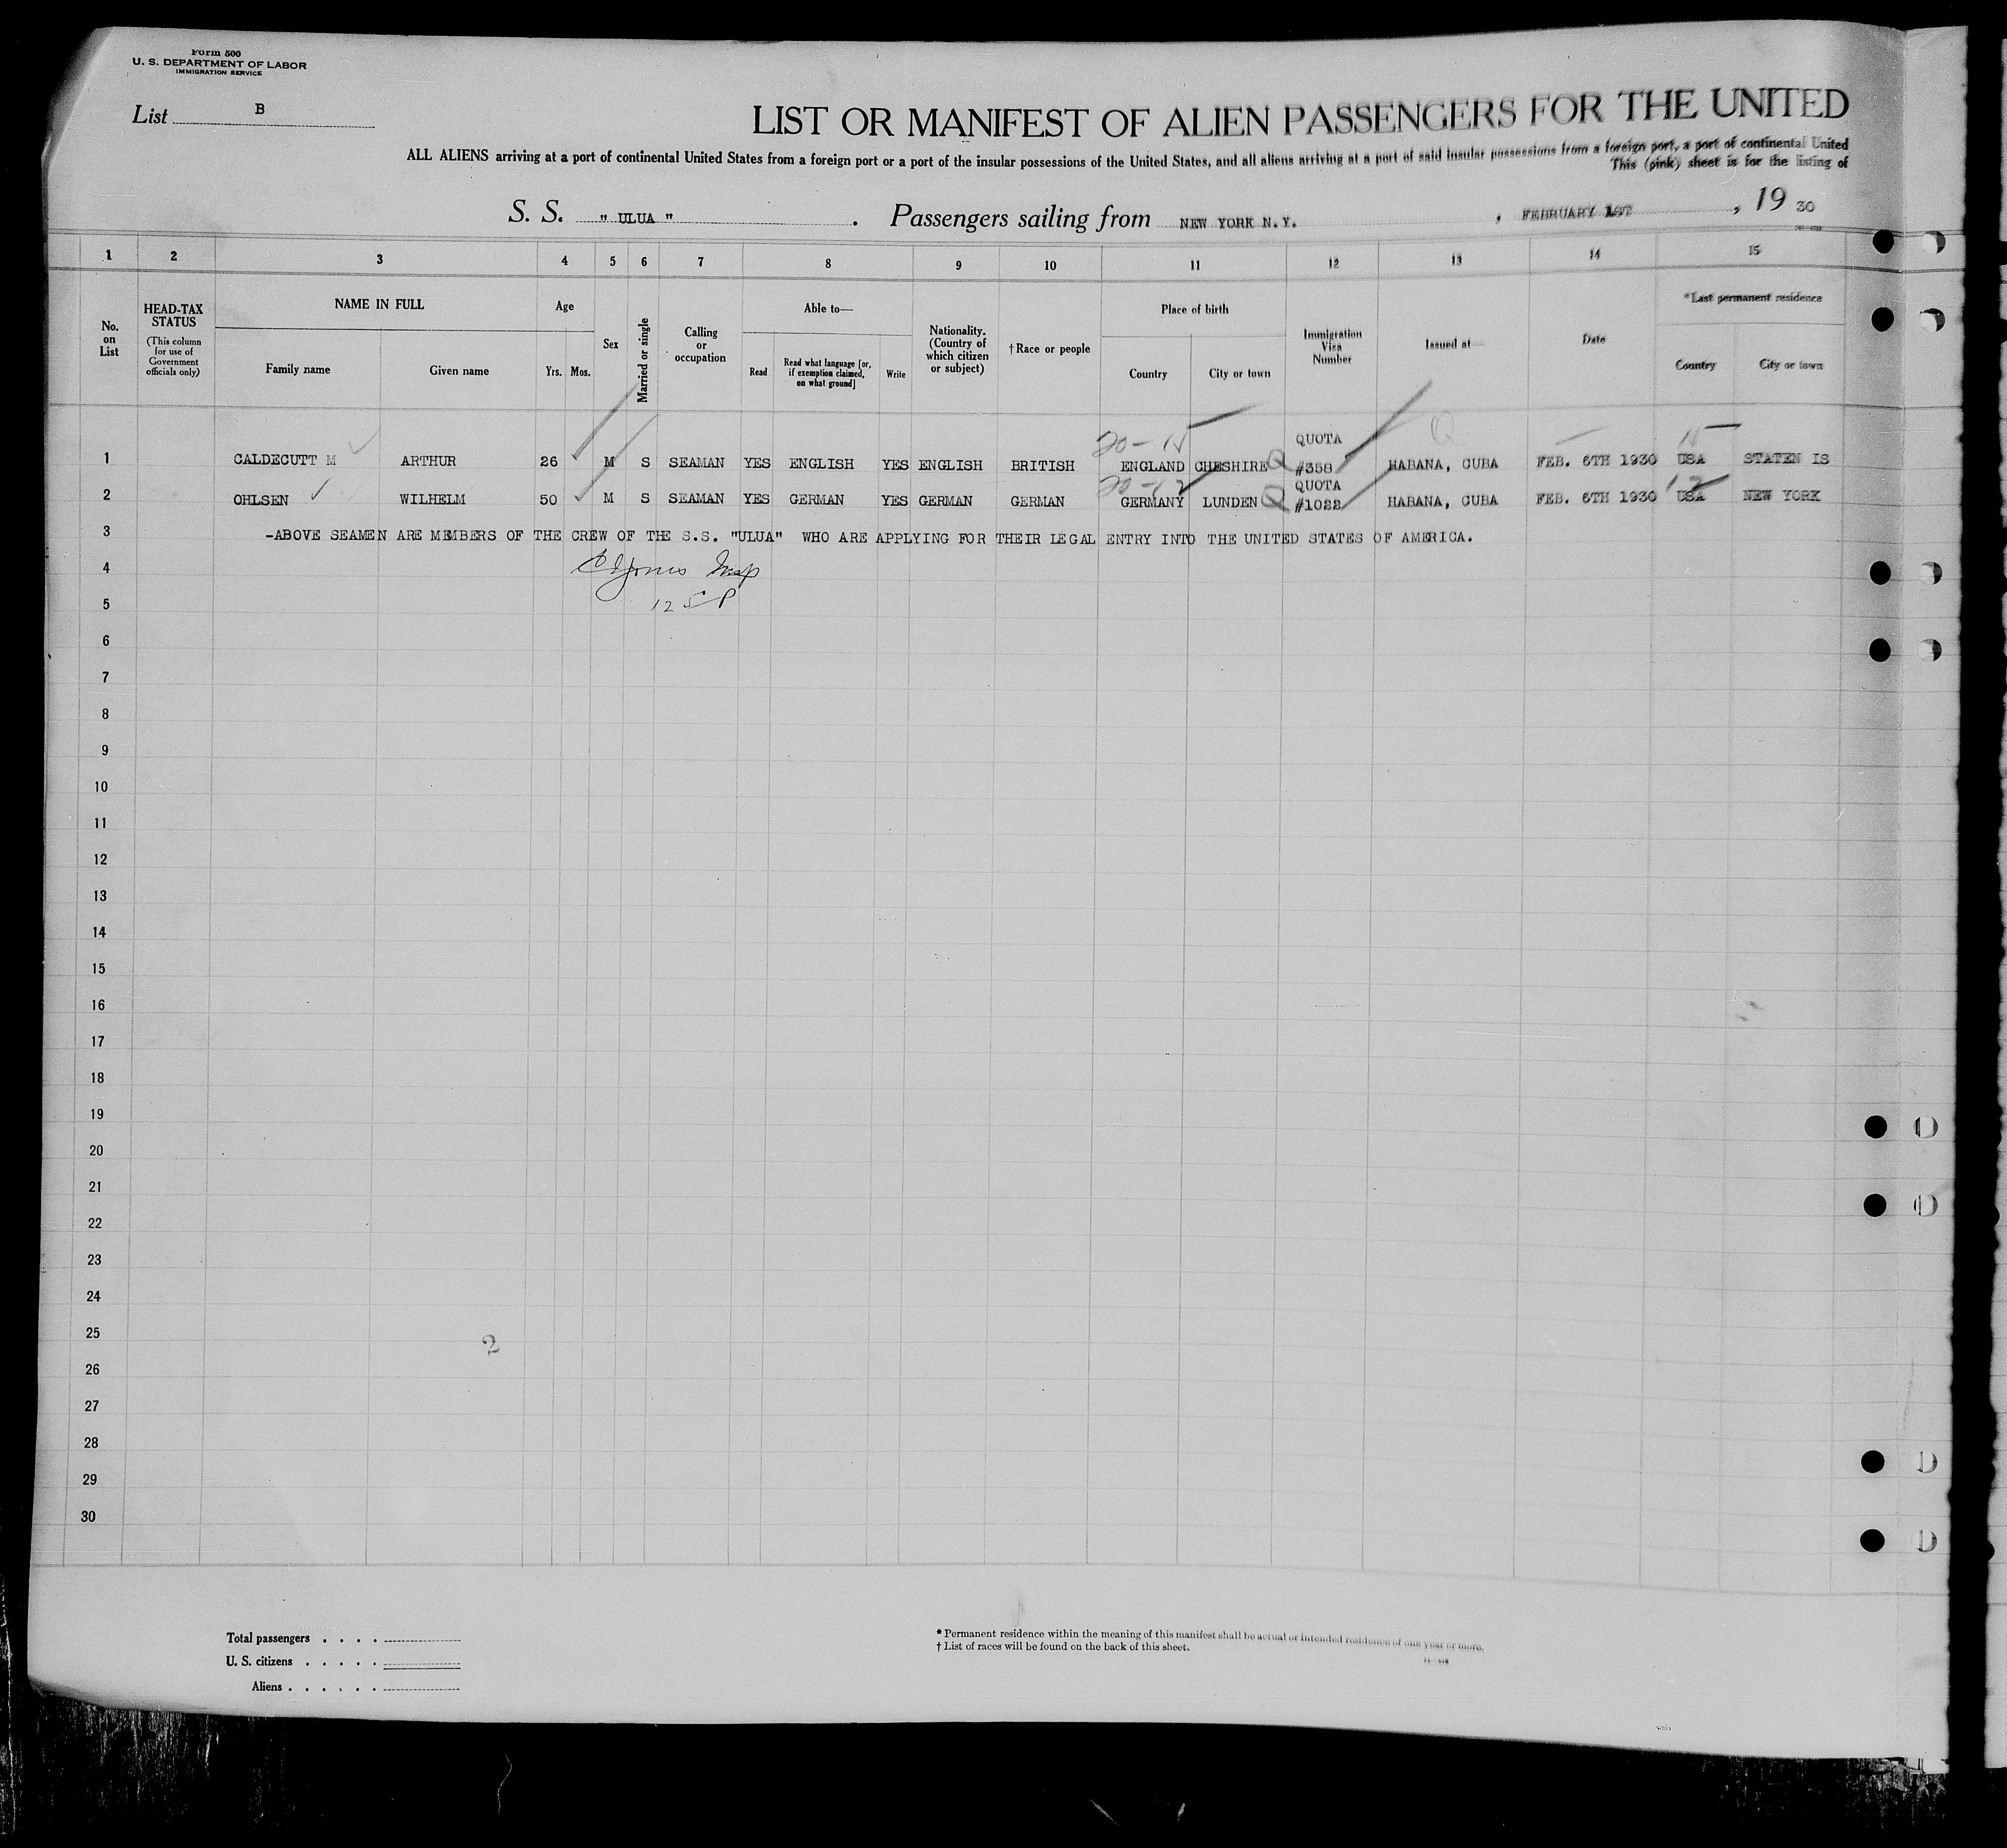 Form 500
U. S. DEPARTMENT OF LABOR
IMMIGRATION SERVICE
List B
LIST OR MANIFEST OF ALIEN PASSENGERS FOR THE UNITED
ALL ALIENS arriving at a port of continental United States from a foreign port or a port of the insular possessions of the United States, and all aliens arriving at a port of said insular possessions from a foreign port, a port of continental United
This (pink) sheet is for the listing of
S. S. " ULUA " . Passengers sailing from NEW YORK N.Y. , FEBRUARY 1ST , 19 30
1 2 3 4 5 6 7 8 9 10 11 12 13 14 15
No. on List
HEAD-TAX STATUS
(This column for use of Government officials only)
NAME IN FULL
Family name Given name
Age
Yrs. Mos.
Sex
Married or single
Calling or occupation
Able to—
Read Read what language [or, if exemption claimed, on what ground] Write
Nationality. (Country of which citizen or subject)
†Race or people
Place of birth
Country City or town
Immigration Visa Number
Issued at—
Date
*Last permanent residence
Country City or town
20-
QUOTA
1 CALDECUTT M ARTHUR 26 M S SEAMAN YES ENGLISH YES ENGLISH BRITISH ENGLAND CHESHIRE Q #358 HABANA, CUBA FEB. 6TH 1930 USA STATEN IS
QUOTA
2 OHLSEN WILHELM 50 M S SEAMAN YES GERMAN YES GERMAN GERMAN GERMANY LUNDEN Q #1022 HABANA, CUBA FEB. 6TH 1930 USA NEW YORK
3 -ABOVE SEAMEN ARE MEMBERS OF THE CREW OF THE S.S. "ULUA" WHO ARE APPLYING FOR THEIR LEGAL ENTRY INTO THE UNITED STATES OF AMERICA.
4
5
6
7
8
9
10
11
12
13
14
15
16
17
18
19
20
21
22
23
24
25
2
26
27
28
29
30
Total passengers . . . .
U. S. citizens . . . . .
Aliens . . . . . .
* Permanent residence within the meaning of this manifest shall be actual or intended residence of one year or more.
† List of races will be found on the back of this sheet.